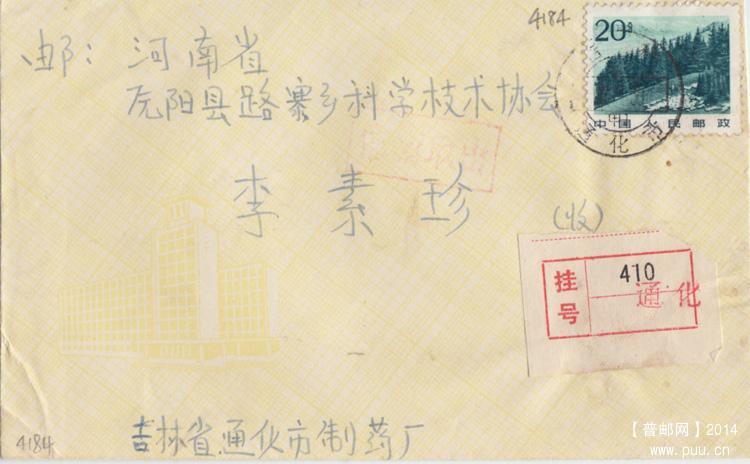 4184
20分
中国人民邮政
化
邮：河南省
原阳县路寨乡科学技术协会
李素珍（收）
挂号
410
通化
吉林省通化市制药厂
4184
【普邮网】2014
www.puu.cn